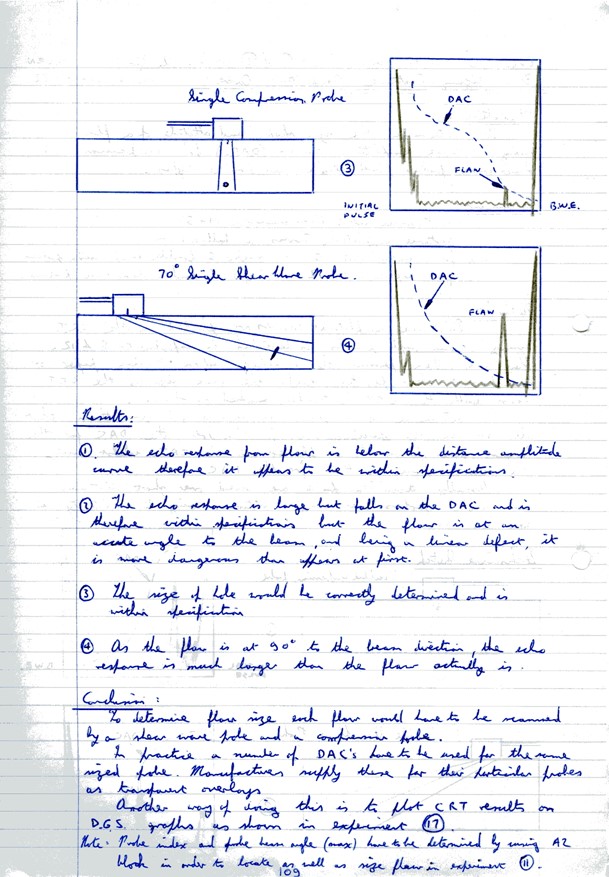 Single Compression Probe
DAC
③
FLAW
INITIAL
PULSE
B.W.E.
70° Single Shear Wave Probe.
DAC
FLAW
④
Results:
① The echo response from flaw is below the distance amplitude
curve therefore it appears to be within specifications.
② The echo response is large but falls on the DAC and is
therefore within specifications but the flaw is at an
accute angle to the beam, and being a linear defect, it
is more dangerous than appears at first.
③ The size of hole would be correctly determined and is
within specification
④ As the flaw is at 90° to the beam direction, the echo
response is much larger than the flaw actually is.
Conclusion:
To determine flaw size each flaw would have to be scanned
by a shear wave probe and a compression probe.
In practice a number of DAC's have to be used for the same
sized probe. Manufactures supply these for their particular probes
as transparent overlays
Another way of doing this is to plot CRT results on
D.G.S. graphs as shown in experiment ⑰.
Note: Probe index and probe beam angle (max) have to be determined by using A2
block in order to locate as well as size flaw in experiment ⑪.
109